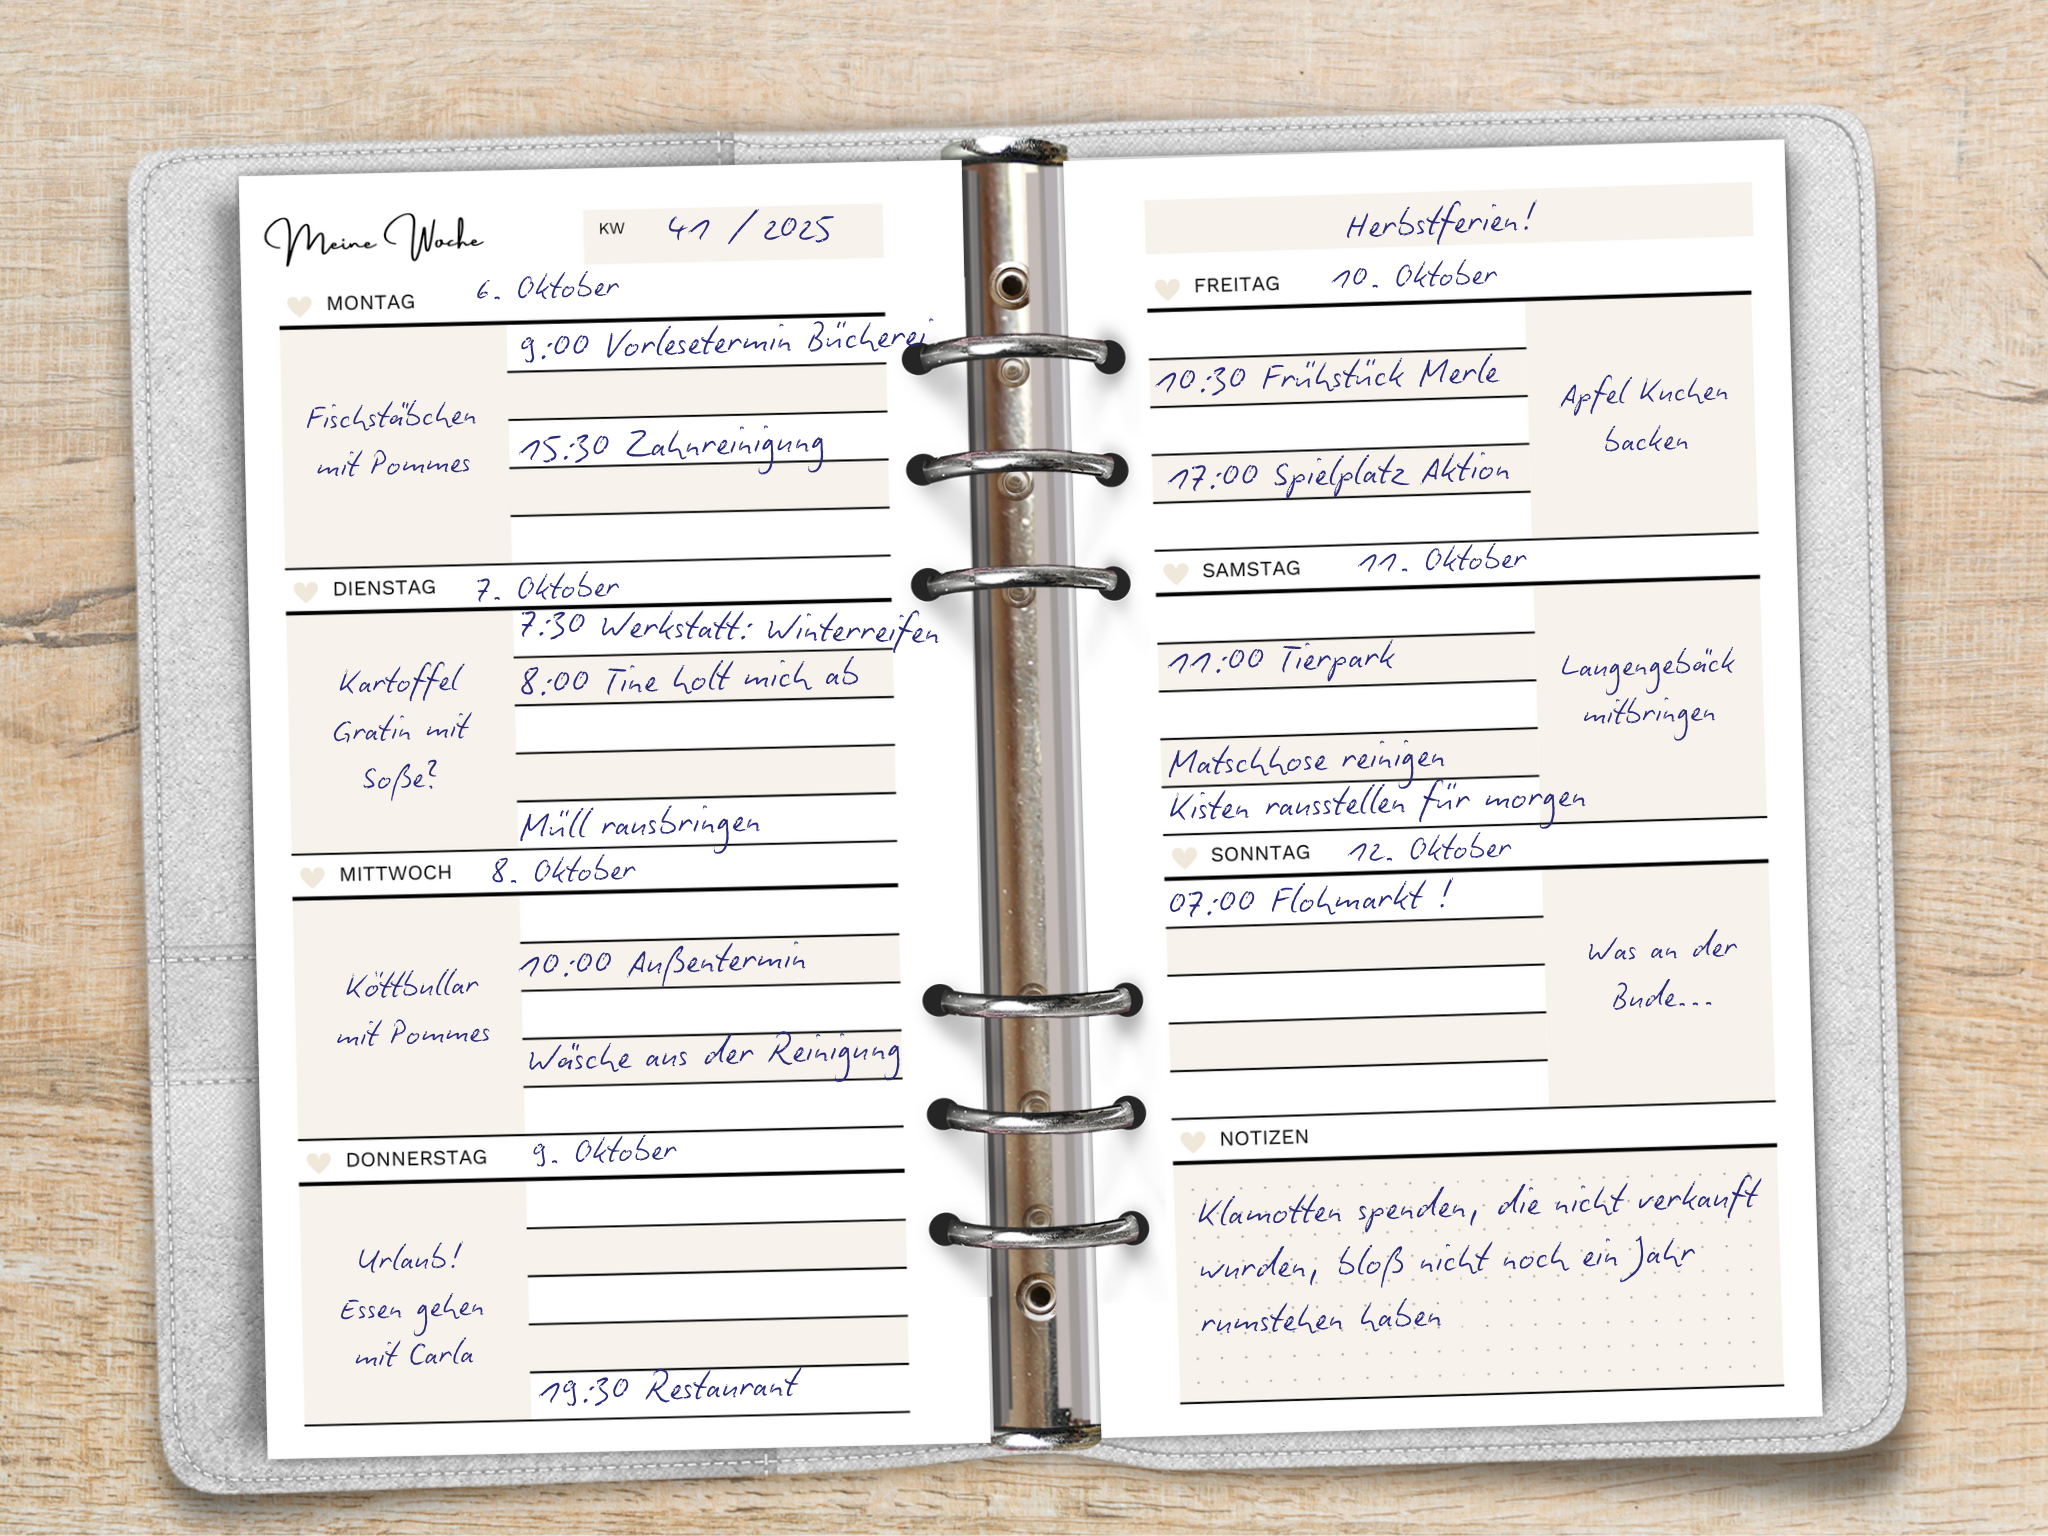 Meine Woche
KW 41 / 2025
MONTAG 6. Oktober
9:00 Vorlesetermin Bücherei
Fischstäbchen
mit Pommes
15:30 Zahnreinigung
DIENSTAG 7. Oktober
7:30 Werkstatt: Winterreifen
8:00 Tine holt mich ab
Kartoffel
Gratin mit
Soße?
Müll rausbringen
MITTWOCH 8. Oktober
10:00 Außentermin
Köttbullar
mit Pommes
Wäsche aus der Reinigung
DONNERSTAG 9. Oktober
Urlaub!
Essen gehen
mit Carla
19:30 Restaurant
Herbstferien!
FREITAG 10. Oktober
10:30 Frühstück Merle
17:00 Spielplatz Aktion
Apfel Kuchen
backen
SAMSTAG 11. Oktober
11:00 Tierpark
Laugengebäck
mitbringen
Matschhose reinigen
Kisten rausstellen für morgen
SONNTAG 12. Oktober
07:00 Flohmarkt !
Was an der
Bude...
NOTIZEN
Klamotten spenden, die nicht verkauft
wurden, bloß nicht noch ein Jahr
rumstehen haben